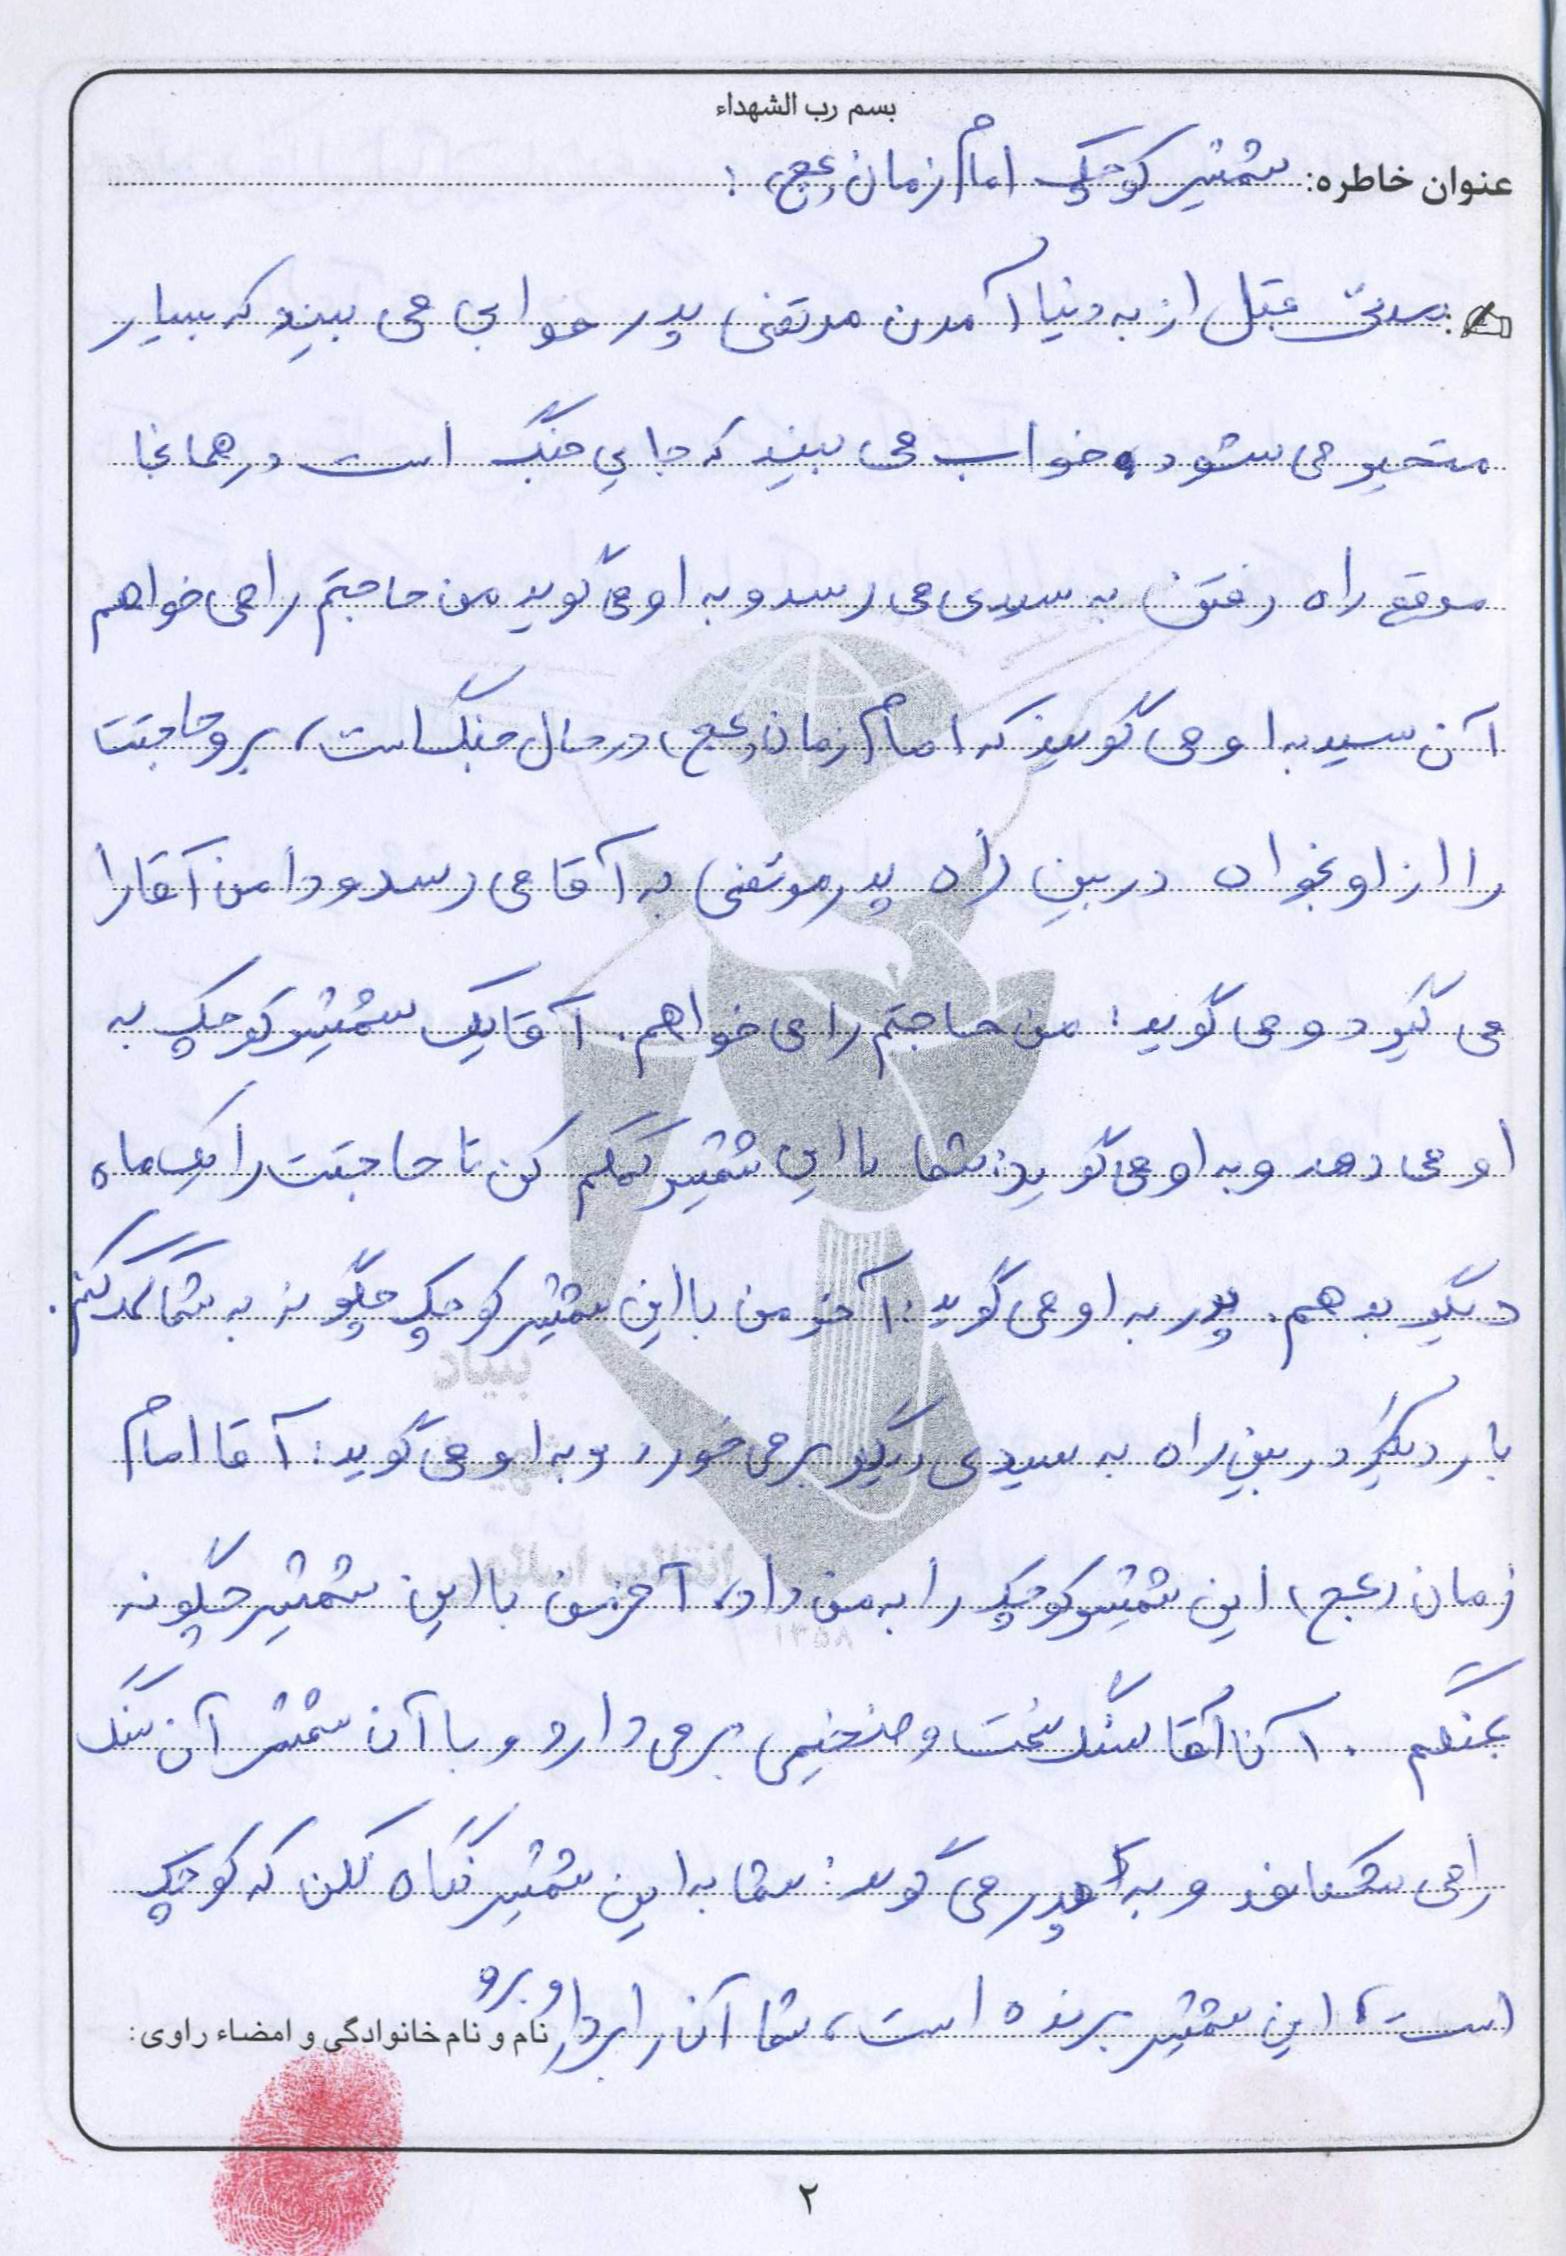 بسم رب الشهداء
عنوان خاطره: شمشیر کوچک امام زمان (عج) :
مدتی قبل از به دنیا آمدن مرتضی پدر خوابی می بیند که بسیار
متحیر می شود، خواب می بیند که جایی جنگ است در همانجا
موقع راه رفتن به سیدی می رسد و به او می گوید من حاجتم را می خواهم
آن سید به او می گوید که امام زمان (عج) در حال جنگ است، برو حاجتت
را از او بخواه در بین راه پدر مرتضی به آقا می رسد و دامن آقا را
می گیرد و می گوید: من حاجتم را می خواهم. آقا یک شمشیر کوچک به
او می دهد و به او می گوید: شما با این شمشیر کمکم کن تا حاجتت را یک ماه
دیگر بدهم. پدر به او می گوید: آخر من با این شمشیر کوچک چگونه به شما کمک کنم.
بار دیگر در بین راه به سیدی دیگر بر می خورد و به او می گوید: آقا امام
زمان (عج) این شمشیر کوچک را به من داد، آخر من با این شمشیر چگونه
بجنگم. آن آقا سنگ سخت و ضخیمی بر می دارد و با آن شمشیر آن سنگ
را می شکافد و به پدر می گوید: شما به این شمشیر نگاه نکن که کوچک
است، این شمشیر برنده است، شما آن را بردار و برو
نام و نام خانوادگی و امضاء راوی:
بنیاد
شهید
انقلاب اسلامی
۱۳۵۸
۲